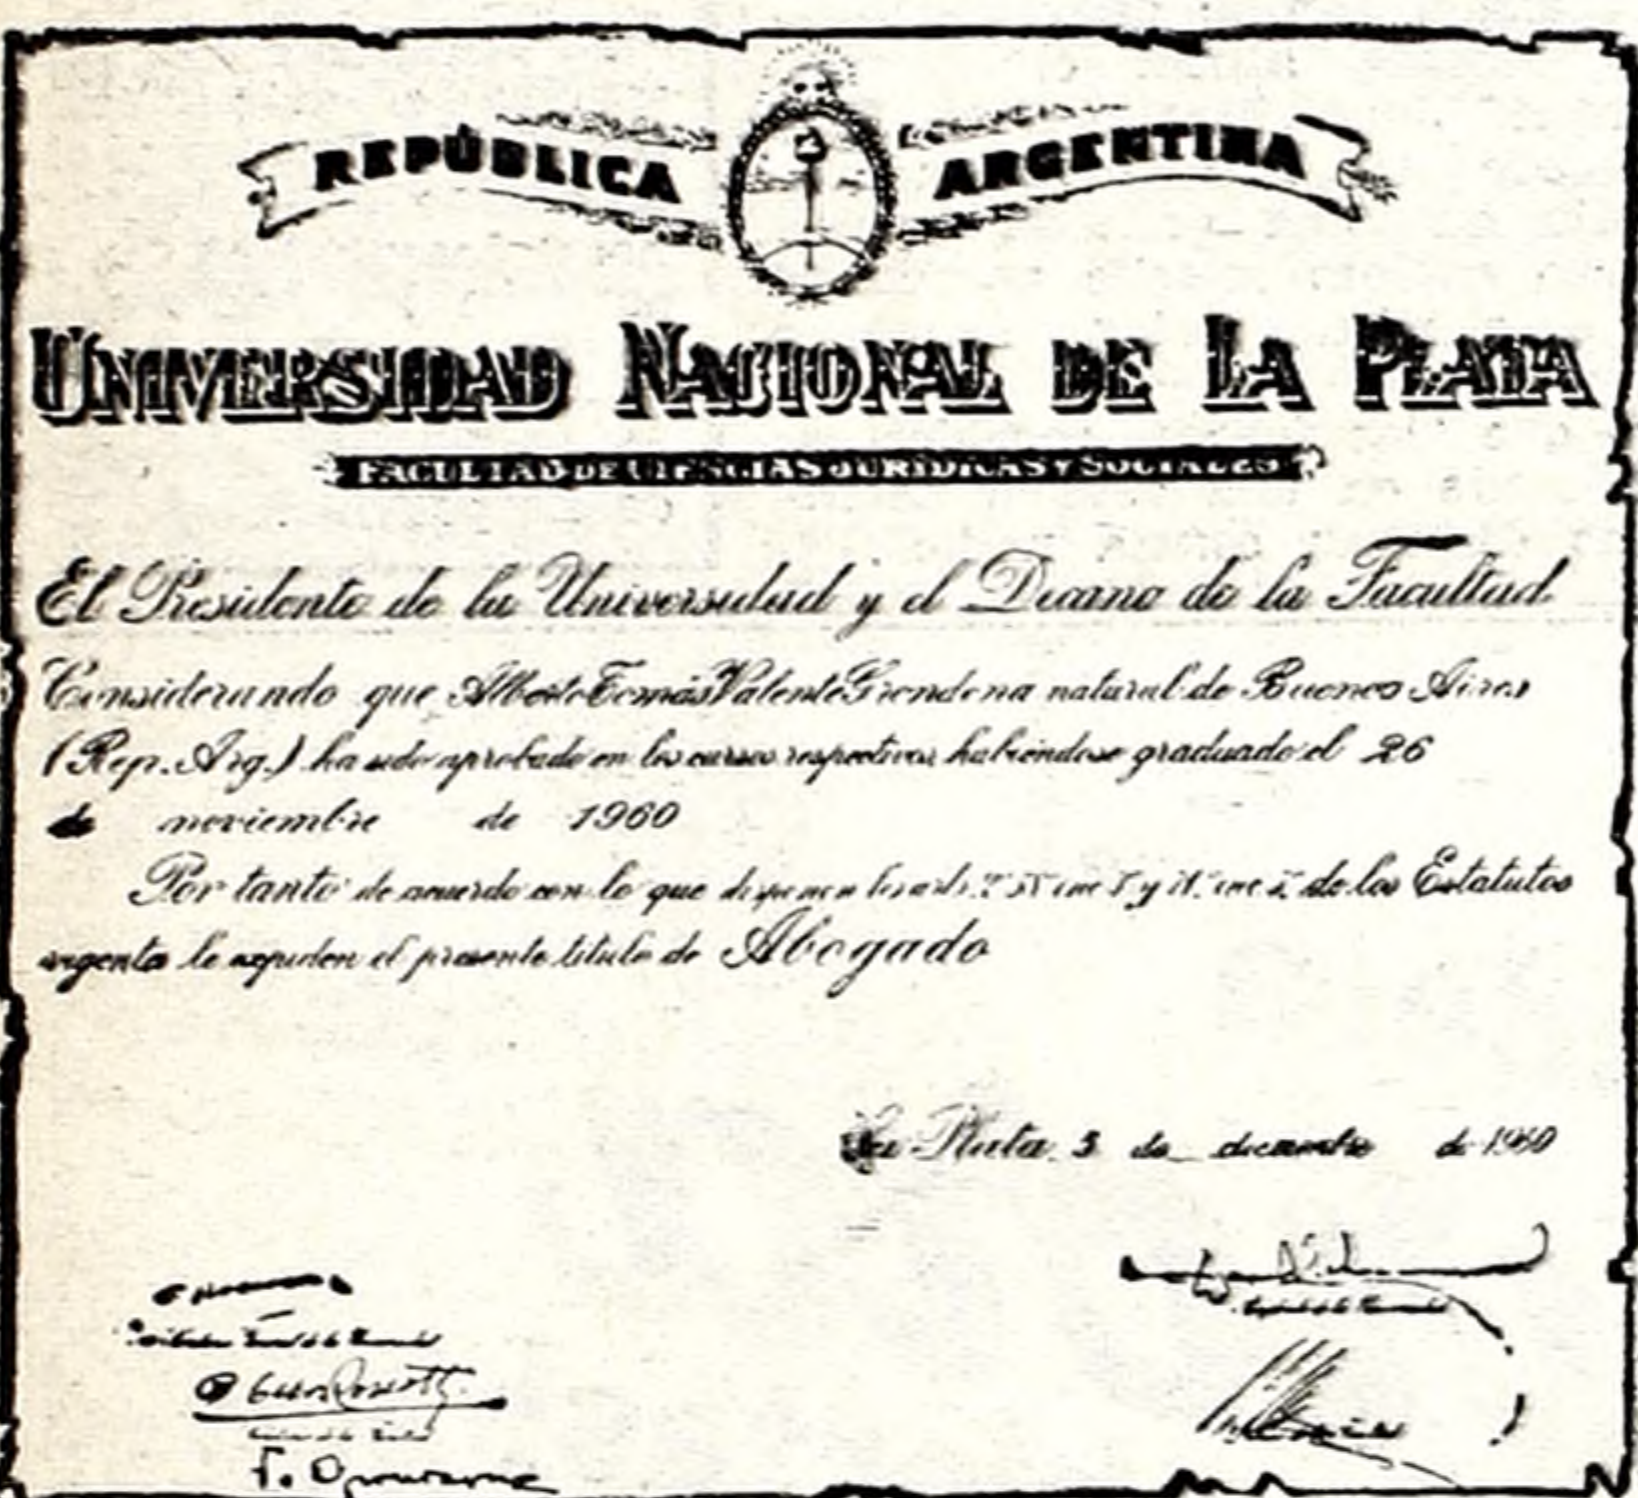 REPÚBLICA ARGENTINA
UNIVERSIDAD NACIONAL DE LA PLATA
FACULTAD DE CIENCIAS JURÍDICAS Y SOCIALES
El Presidente de la Universidad y el Decano de la Facultad
Considerando que Alberto Tomás Valente Grondona natural de Buenos Aires
(Rep. Arg.) ha sido aprobado en los cursos respectivos habiéndose graduado el 26
de noviembre de 1960
Por tanto de acuerdo con lo que disponen los arts. y de los Estatutos
vigentes le expiden el presente título de Abogado
La Plata, 5 de diciembre de 1960